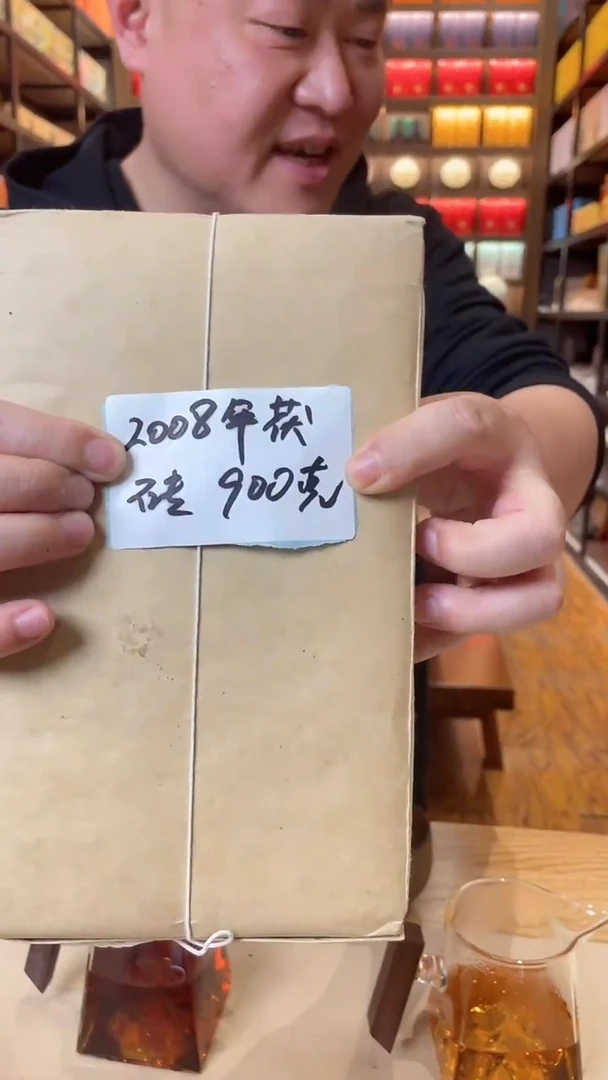 2008年茯
砖 900克